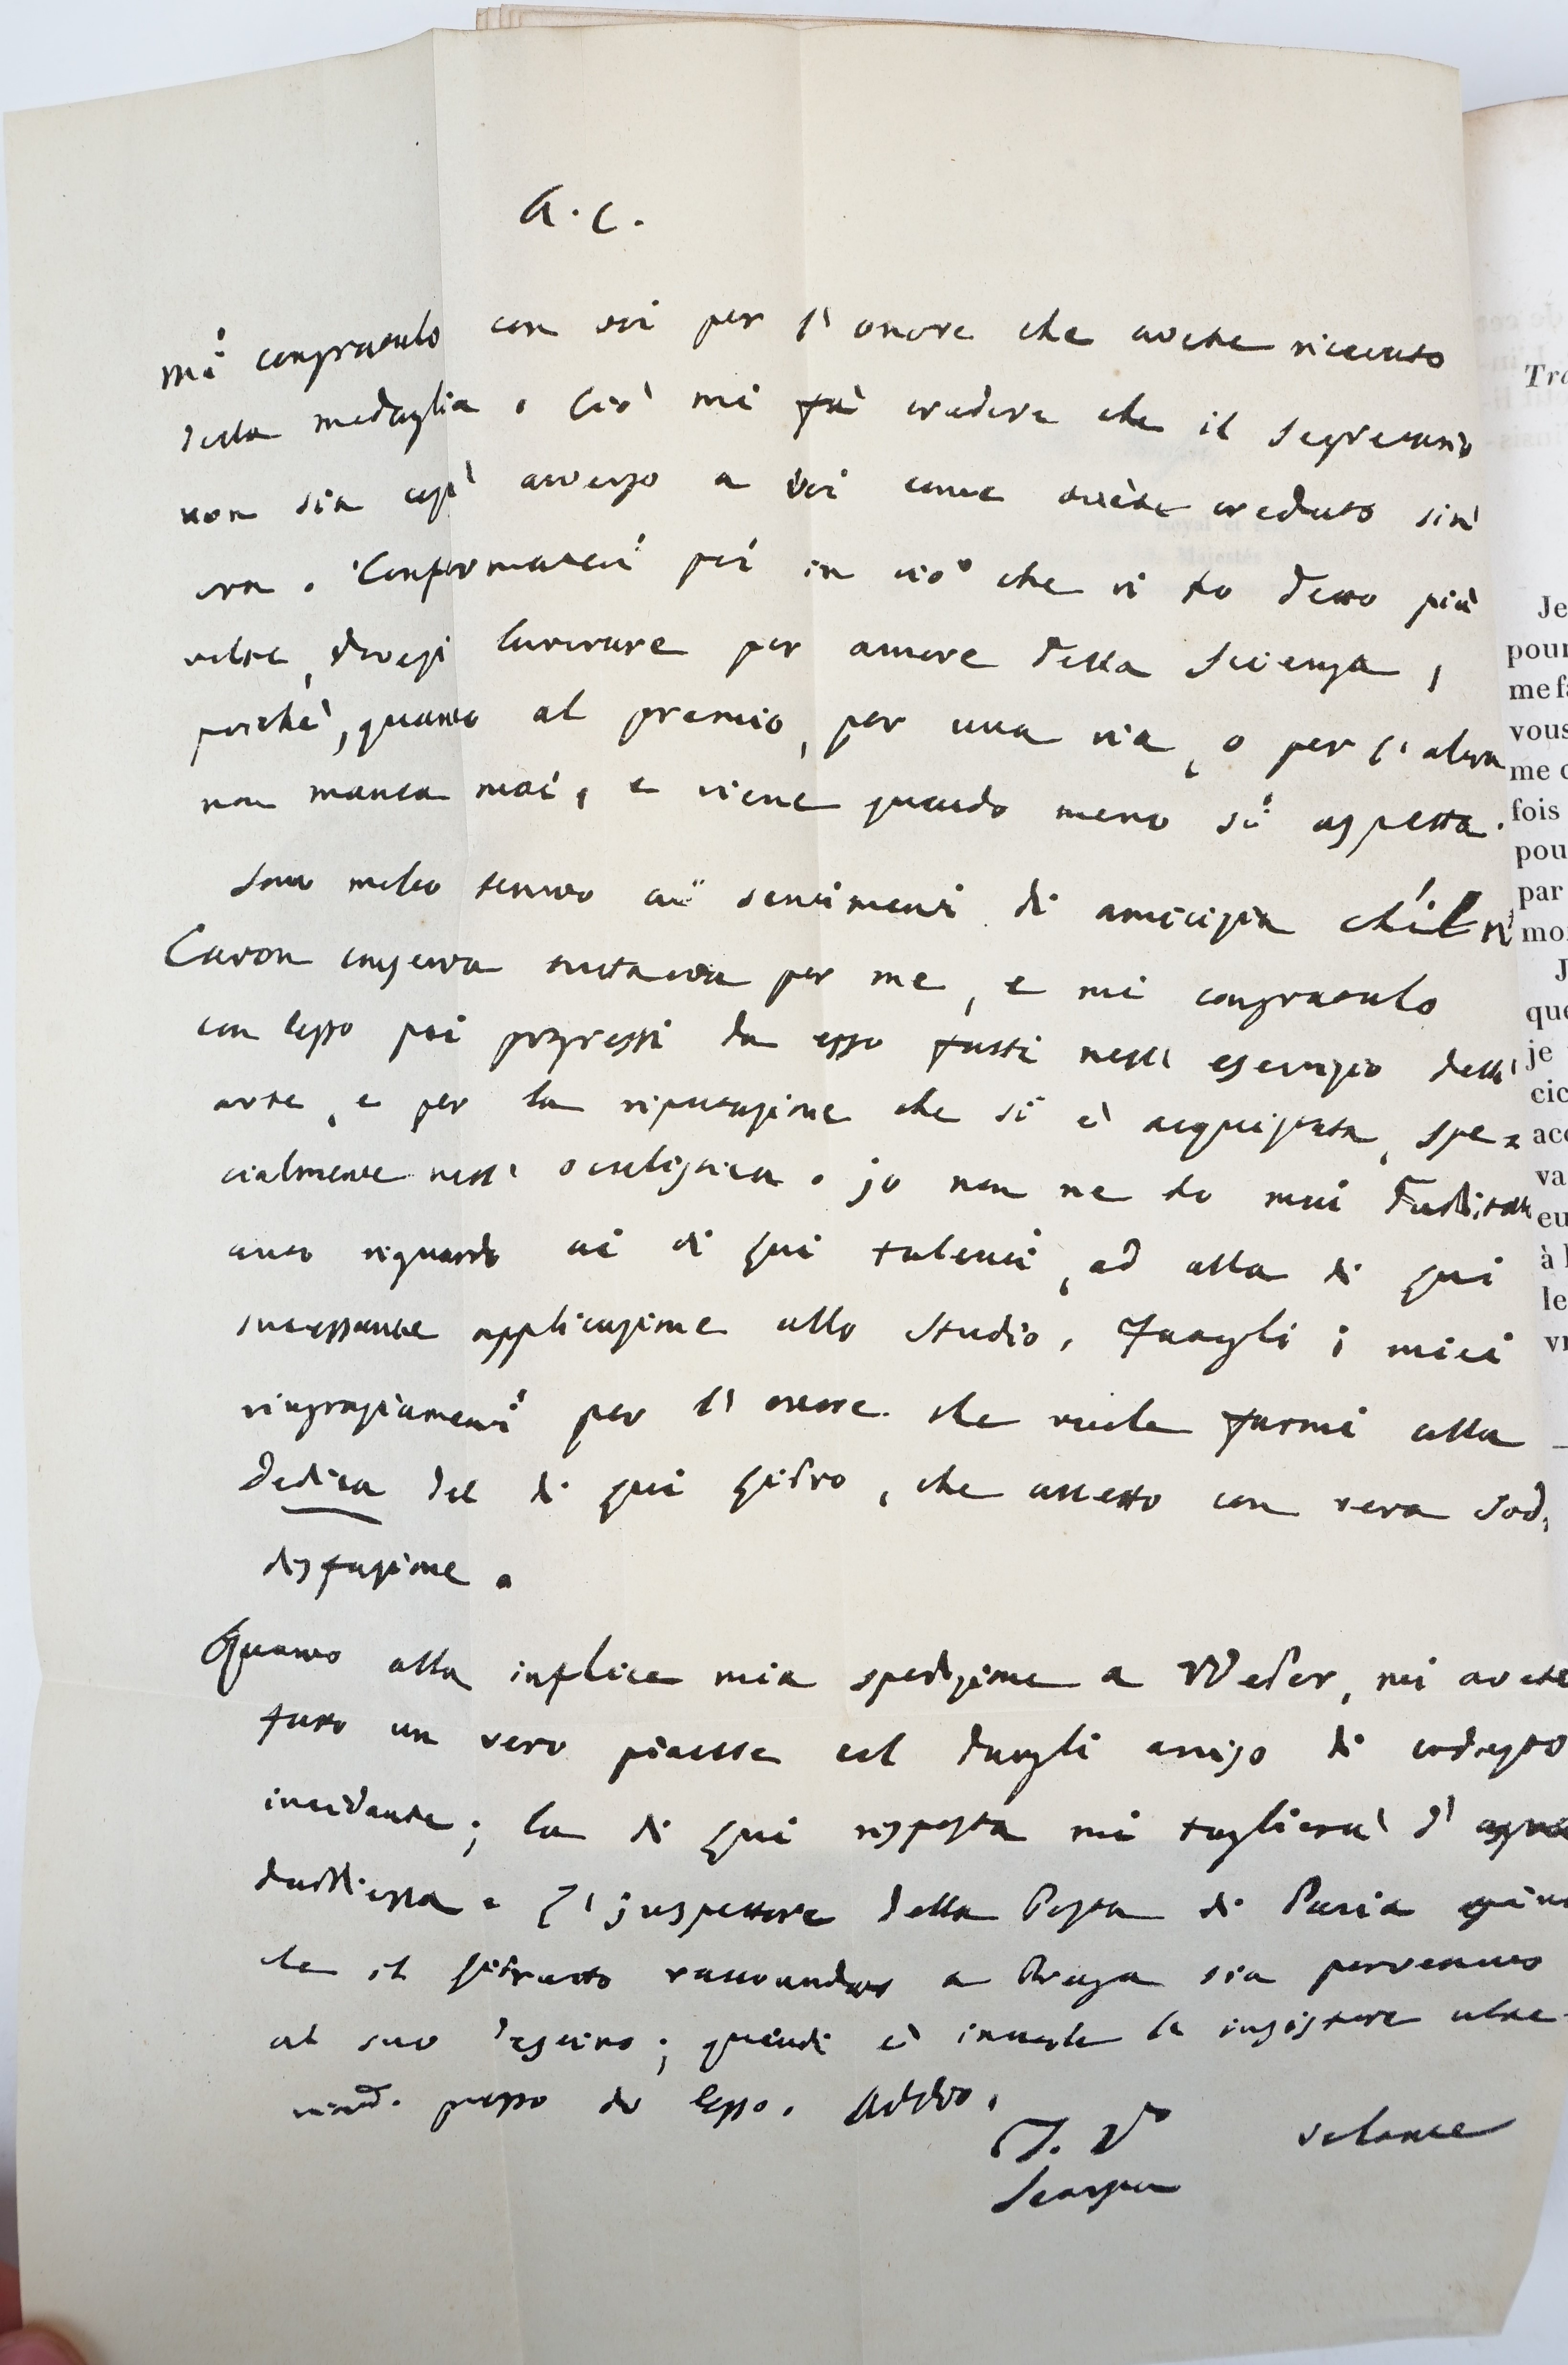 A. C.
Mi congratulo con voi per l'onore che avete ricevuto
della medaglia. Ciò mi fà credere che il Segretario
non sia così avverso a Voi come avete creduto sin'
ora. Confermatevi poi in ciò che vi ho detto più
volte, doversi lavorare per amore della Scienza,
poichè, quanto al premio, per una via, o per l'altra
non manca mai, e viene quando meno si aspetta.
Sono molto tenuto ai sentimenti di amicizia che il
Cavon conserva tuttavia per me, e mi congratulo
con lesso pei progressi da esso fatti nell' esercizio dell'
arte, e per la riputazione che si è acquistata, spe=
cialmente nell' oculistica. jo non ne ho mai dubitato
avuto riguardo ai di lui talenti, ed alla di lui
incessante applicazione allo Studio. Fategli i miei
ringraziamenti per l'onore che vuole farmi colla
Dedica del di lui Libro, che accetto con vera Sod,
disfazione.
Quanto alla infelice mia spedizione a Weber, mi avete
fatto un vero piacere col dargli avviso di codesto
incidente; la di lui risposta mi toglierà d'ogni
dubbiezza. L'jnspettore della Posta di Pavia
che il Libretto raccomandato a Praga sia pervenuto
al suo destino; quindi è inutile lo insistere ulte-
riormte. presso di lesso. Addio.
Il Vo
Scarpa
Je
pour
me fa
vous
me
fois
pou
par
mo
J
que
je
cic
acc
va
eu
à l
le
vr